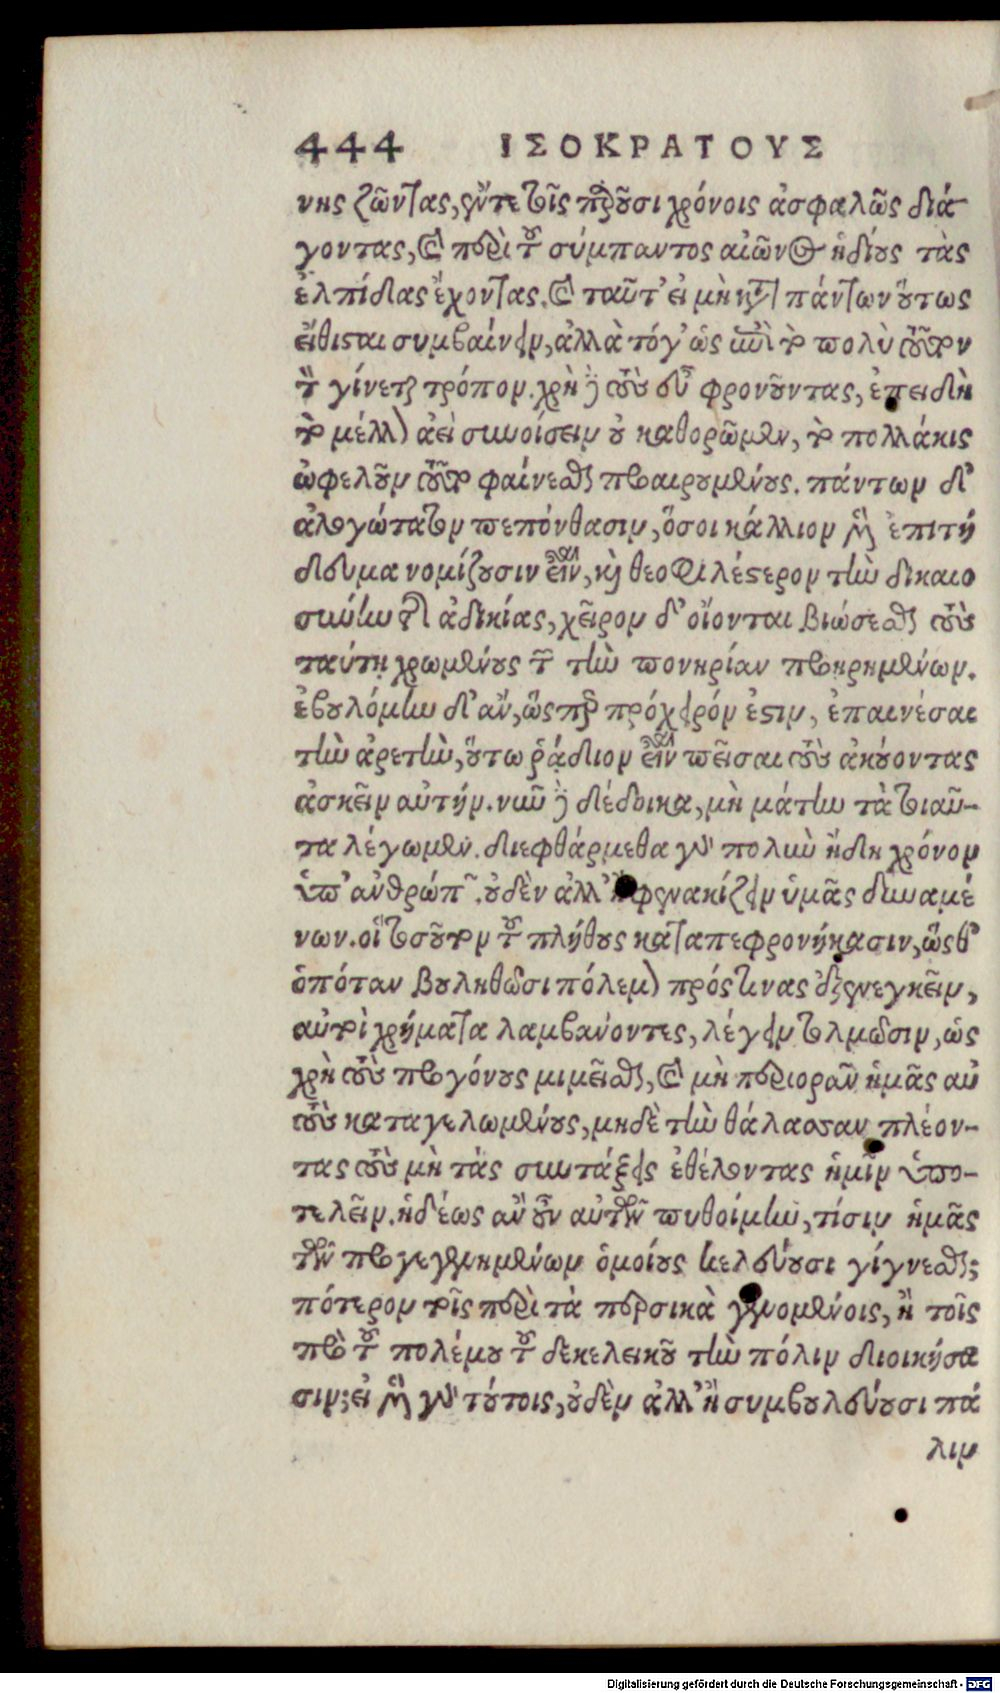 444 ΙΣΟΚΡΑΤΟΥΣ
νης ζῶντας, ἔν τε τοῖς παροῦσι χρόνοις ἀσφαλῶς διά
γοντας, καὶ περὶ τοῦ σύμπαντος αἰῶνος ἡδίους τὰς
ἐλπίδας ἔχοντας. καὶ ταῦτ' εἰ μὴ κατὰ πάντων οὕτως
εἴθισται συμβαίνειν, ἀλλὰ τόγ' ὡς ἐπὶ τὸ πολὺ τοῦτον
τὸν γίνεται τρόπον. χρὴ δὲ τοὺς εὖ φρονοῦντας, ἐπειδὴ
τὸ μέλλον ἀεὶ συνοίσειν οὐ καθορῶμεν, τὸ πολλάκις
ὠφελοῦν τοῦτο φαίνεσθαι προαιρουμένους. πάντων δ'
ἀλογώτατον πεπόνθασιν, ὅσοι κάλλιον μὲν ἐπιτή
δευμα νομίζουσιν εἶναι, καὶ θεοφιλέστερον τὴν δικαιο
σύνην τῆς ἀδικίας, χεῖρον δ' οἴονται βιώσεσθαι τοὺς
ταύτῃ χρωμένους τῶν τὴν πονηρίαν προῃρημένων.
ἐβουλόμην δ' ἄν, ὥσπερ πρόχειρόν ἐστιν, ἐπαινέσαι
τὴν ἀρετὴν, οὕτω ῥᾴδιον εἶναι πεῖσαι τοὺς ἀκούοντας
ἀσκεῖν αὐτήν. νῦν δὲ δέδοικα, μὴ μάτην τὰ τοιαῦ-
τα λέγωμεν. διεφθάρμεθα γὰρ πολὺν ἤδη χρόνον
ὑπ' ἀνθρώπων. οὐδὲν ἀλλ' ἢ φενακίζειν ὑμᾶς δυναμέ
νων. οἳ τοσοῦτον τοῦ πλήθους καταπεφρονήκασιν, ὥσθ'
ὁπόταν βουληθῶσι πόλεμον πρός τινας ἐξενεγκεῖν,
αὐτοὶ χρήματα λαμβάνοντες, λέγειν τολμῶσιν, ὡς
χρὴ τοὺς προγόνους μιμεῖσθαι, καὶ μὴ περιορᾶν ἡμᾶς αὐ
τοὺς καταγελωμένους, μηδὲ τὴν θάλασσαν πλέον-
τας τοὺς μὴ τὰς συντάξεις ἐθέλοντας ἡμῖν ὑπο-
τελεῖν. ἡδέως ἂν οὖν αὐτῶν πυθοίμην, τίσιν ἡμᾶς
τῶν προγεγενημένων ὁμοίους κελεύουσι γίγνεσθαι;
πότερον τοῖς περὶ τὰ περσικὰ γενομένοις, ἢ τοῖς
πρὸ τοῦ πολέμου τοῦ δεκελεικοῦ τὴν πόλιν διοικήσα
σιν; εἰ μὲν γὰρ τούτοις, οὐδὲν ἀλλ' ἢ συμβουλεύουσι πά
λιν
Digitalisierung gefördert durch die Deutsche Forschungsgemeinschaft - DFG